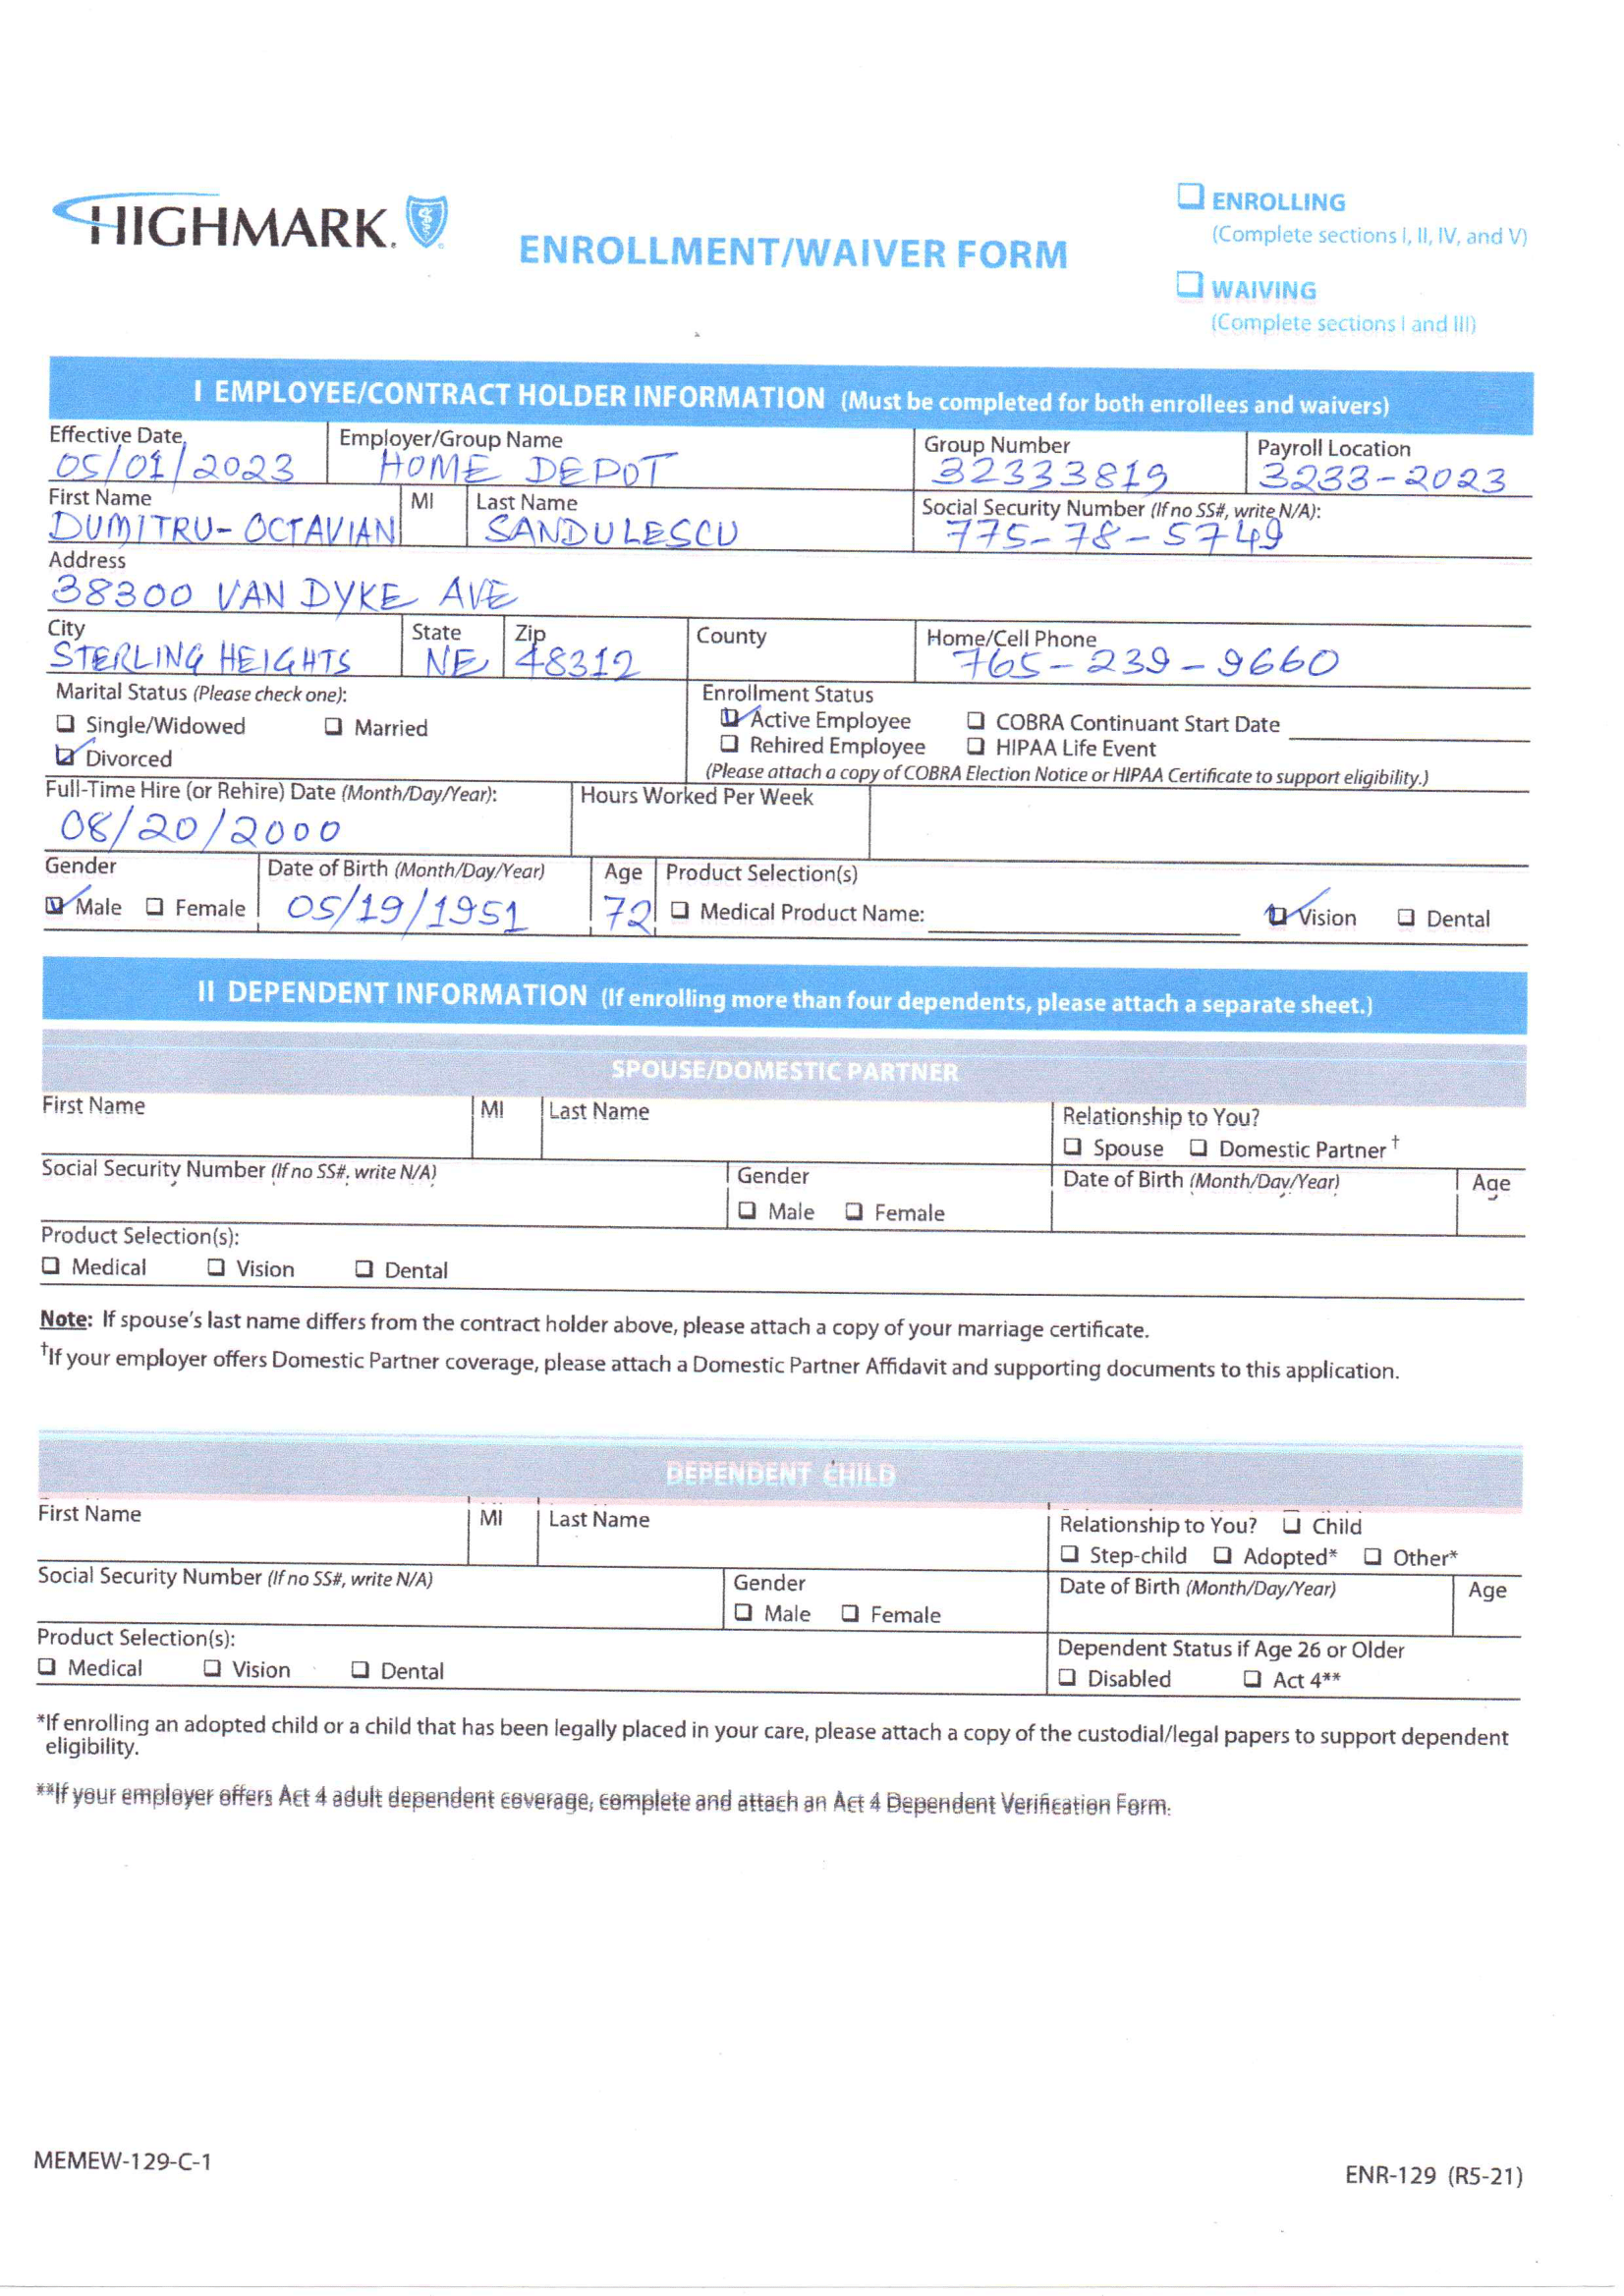 HIGHMARK.
ENROLLMENT/WAIVER FORM
☐ ENROLLING
(Complete sections I, II, IV, and V)
☐ WAIVING
(Complete sections I and III)
I EMPLOYEE/CONTRACT HOLDER INFORMATION (Must be completed for both enrollees and waivers)
Effective Date Employer/Group Name Group Number Payroll Location
05/01/2023 HOME DEPOT 32333819 3233-2023
First Name MI Last Name Social Security Number (If no SS#, write N/A):
DUMITRU-OCTAVIAN SANDULESCU 775-78-5749
Address
38300 VAN DYKE AVE
City State Zip County Home/Cell Phone
STERLING HEIGHTS NE 48312 765-239-9660
Marital Status (Please check one): Enrollment Status
☐ Single/Widowed ☐ Married ☑ Active Employee ☐ COBRA Continuant Start Date
☑ Divorced ☐ Rehired Employee ☐ HIPAA Life Event
(Please attach a copy of COBRA Election Notice or HIPAA Certificate to support eligibility.)
Full-Time Hire (or Rehire) Date (Month/Day/Year): Hours Worked Per Week
08/20/2000
Gender Date of Birth (Month/Day/Year) Age Product Selection(s)
☑ Male ☐ Female 05/19/1951 72 ☐ Medical Product Name: ☑ Vision ☐ Dental
II DEPENDENT INFORMATION (If enrolling more than four dependents, please attach a separate sheet.)
SPOUSE/DOMESTIC PARTNER
First Name MI Last Name Relationship to You?
☐ Spouse ☐ Domestic Partner †
Social Security Number (If no SS#, write N/A) Gender Date of Birth (Month/Day/Year) Age
☐ Male ☐ Female
Product Selection(s):
☐ Medical ☐ Vision ☐ Dental
Note: If spouse's last name differs from the contract holder above, please attach a copy of your marriage certificate.
†If your employer offers Domestic Partner coverage, please attach a Domestic Partner Affidavit and supporting documents to this application.
DEPENDENT CHILD
First Name MI Last Name Relationship to You? ☐ Child
☐ Step-child ☐ Adopted* ☐ Other*
Social Security Number (If no SS#, write N/A) Gender Date of Birth (Month/Day/Year) Age
☐ Male ☐ Female
Product Selection(s): Dependent Status if Age 26 or Older
☐ Medical ☐ Vision ☐ Dental ☐ Disabled ☐ Act 4**
*If enrolling an adopted child or a child that has been legally placed in your care, please attach a copy of the custodial/legal papers to support dependent
eligibility.
**If your employer offers Act 4 adult dependent coverage, complete and attach an Act 4 Dependent Verification Form.
MEMEW-129-C-1
ENR-129 (R5-21)